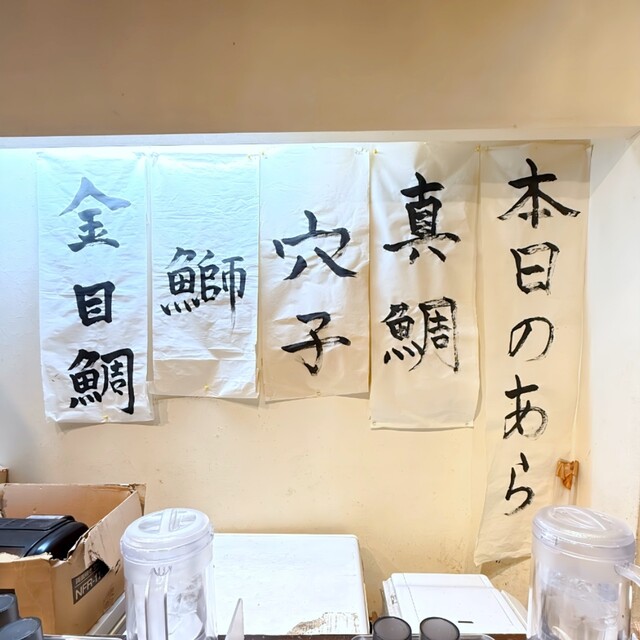 本日のあら
真鯛
穴子
鰤
金目鯛